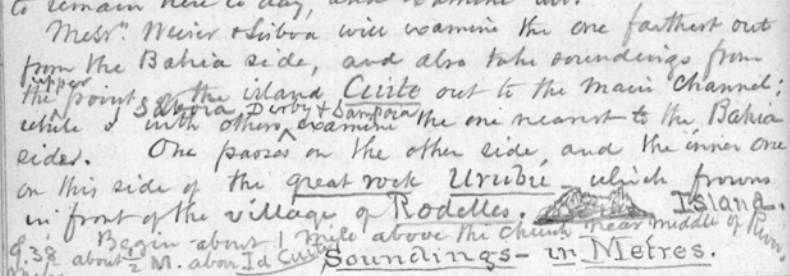 to remain here to day, and examine
Messrs. Weiser & Lisboa will examine the one farthest out
from the Bahia side, and also take soundings from
the upper point of the island Curite out to the main channel;
while I with others, Saboia Derby & Sampaia examine the one nearest to the Bahia
side. One passes on the other side, and the inner one
on this side of the great rock Urubu - which frowns
in front of the village of Rodellas. Island.
Begin about 1 mile above the church near middle of River.
9.38 about 1/2 M. above Id
Soundings - in Metres.